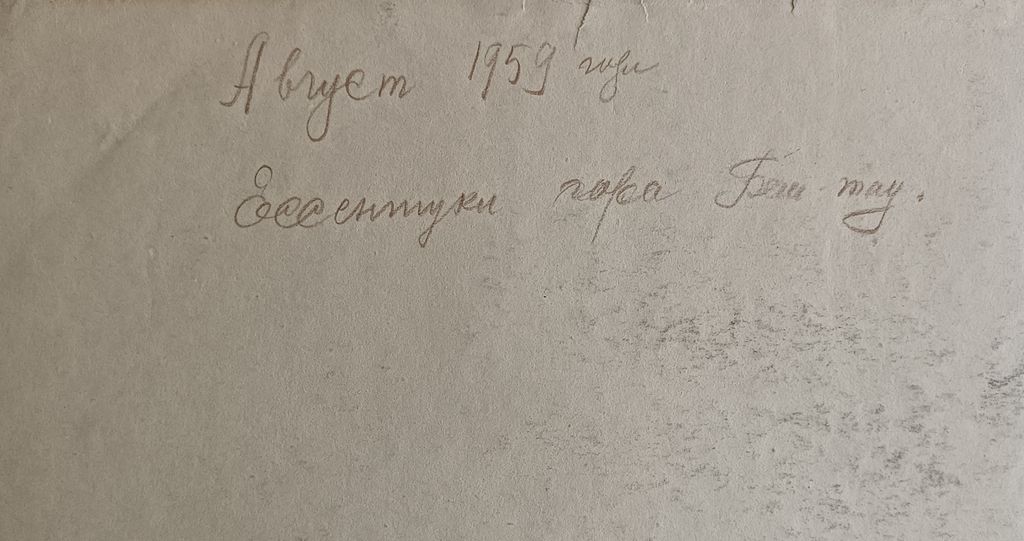 Август 1959 года
Ессентуки гора Беш-тау.